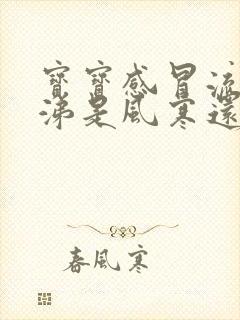 寶寶感冒流
涕是風寒還
春風寒